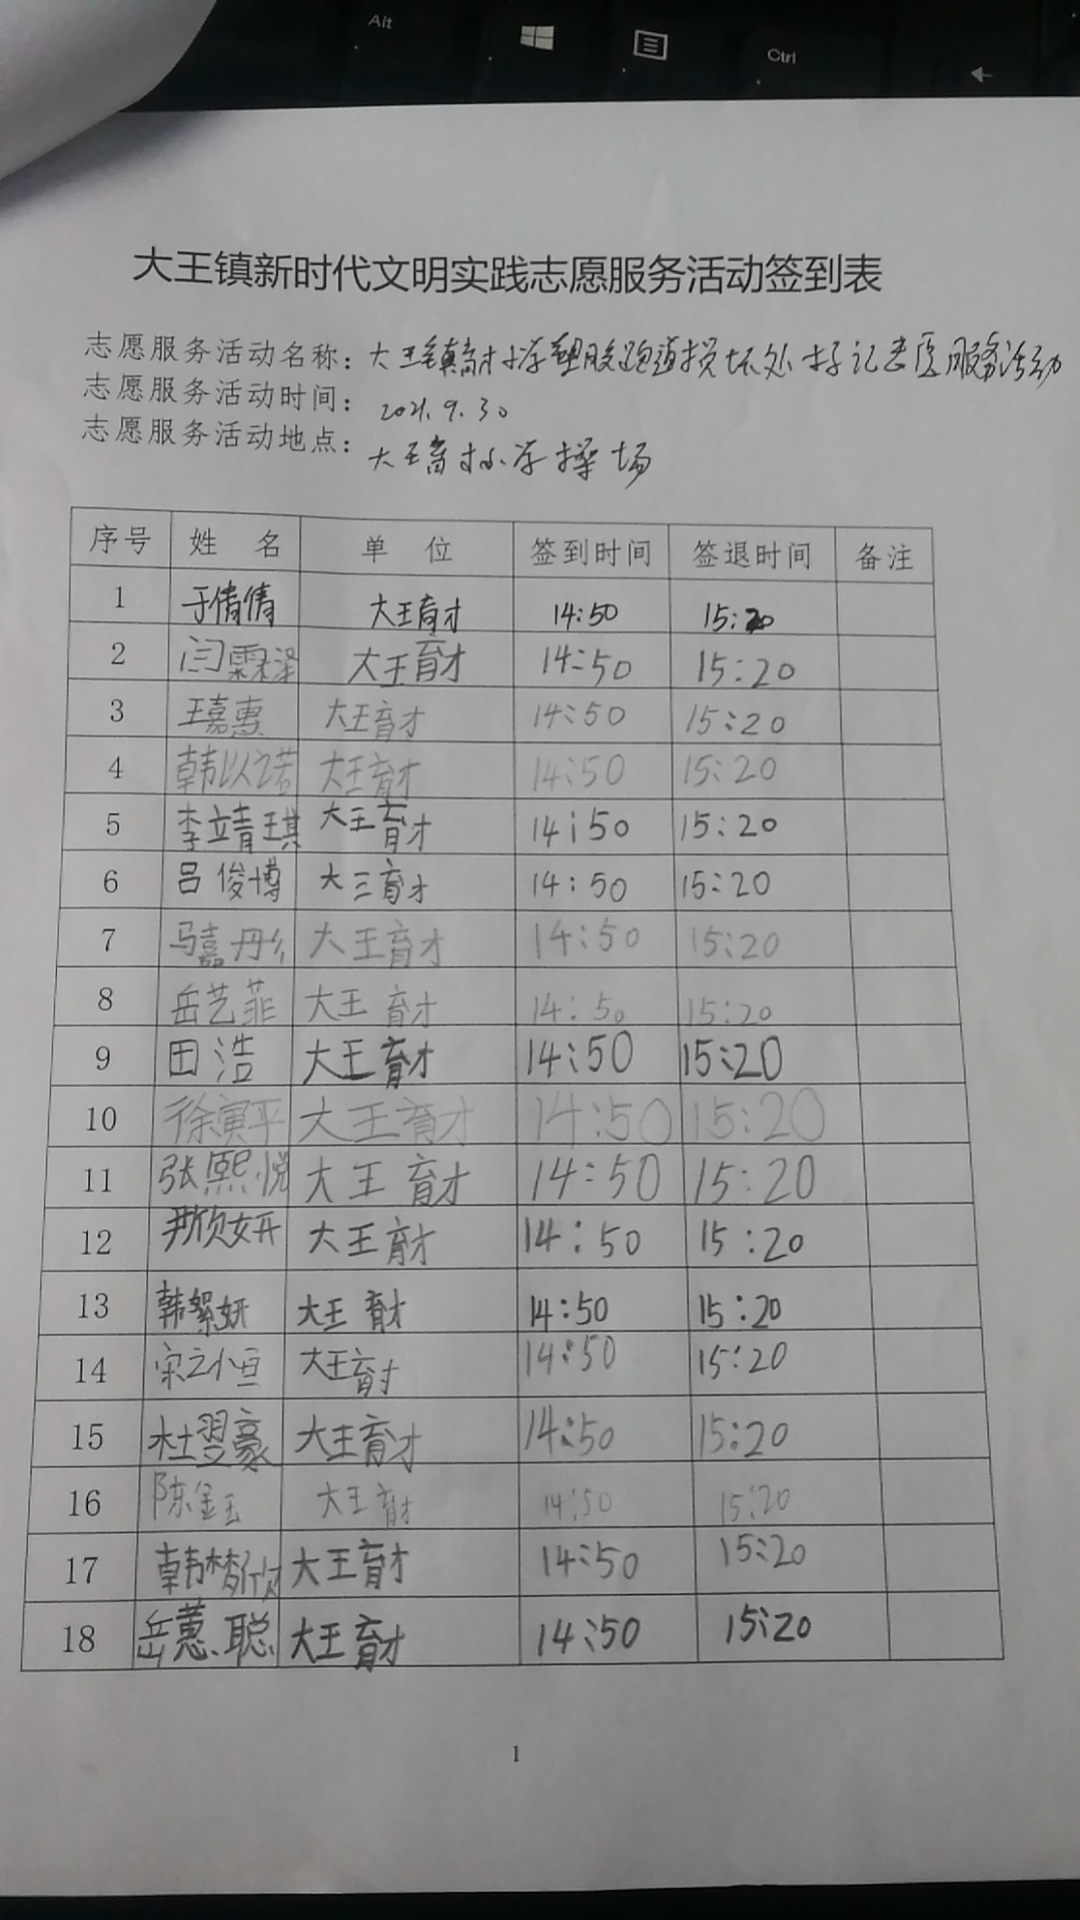 Alt
Ctrl
大王镇新时代文明实践志愿服务活动签到表
志愿服务活动名称：大王镇育才小学塑胶跑道损坏处标记志愿服务活动
志愿服务活动时间：2021.9.30
志愿服务活动地点：大王育才小学操场
序号 姓名 单位 签到时间 签退时间 备注
1 于倩倩 大王育才 14:50 15:20
2 闫霖泽 大王育才 14:50 15:20
3 王嘉惠 大王育才 14:50 15:20
4 韩以诺 大王育才 14:50 15:20
5 李靖琪 大王育才 14:50 15:20
6 吕俊博 大王育才 14:50 15:20
7 马嘉彤 大王育才 14:50 15:20
8 岳艺菲 大王育才 14:50 15:20
9 田浩 大王育才 14:50 15:20
10 徐寅平 大王育才 14:50 15:20
11 张熙悦 大王育才 14:50 15:20
12 尹欣妍 大王育才 14:50 15:20
13 韩絮妍 大王育才 14:50 15:20
14 宋之恒 大王育才 14:50 15:20
15 杜翌豪 大王育才 14:50 15:20
16 陈金玉 大王育才 14:50 15:20
17 韩梦欣 大王育才 14:50 15:20
18 岳蕙聪 大王育才 14:50 15:20
1